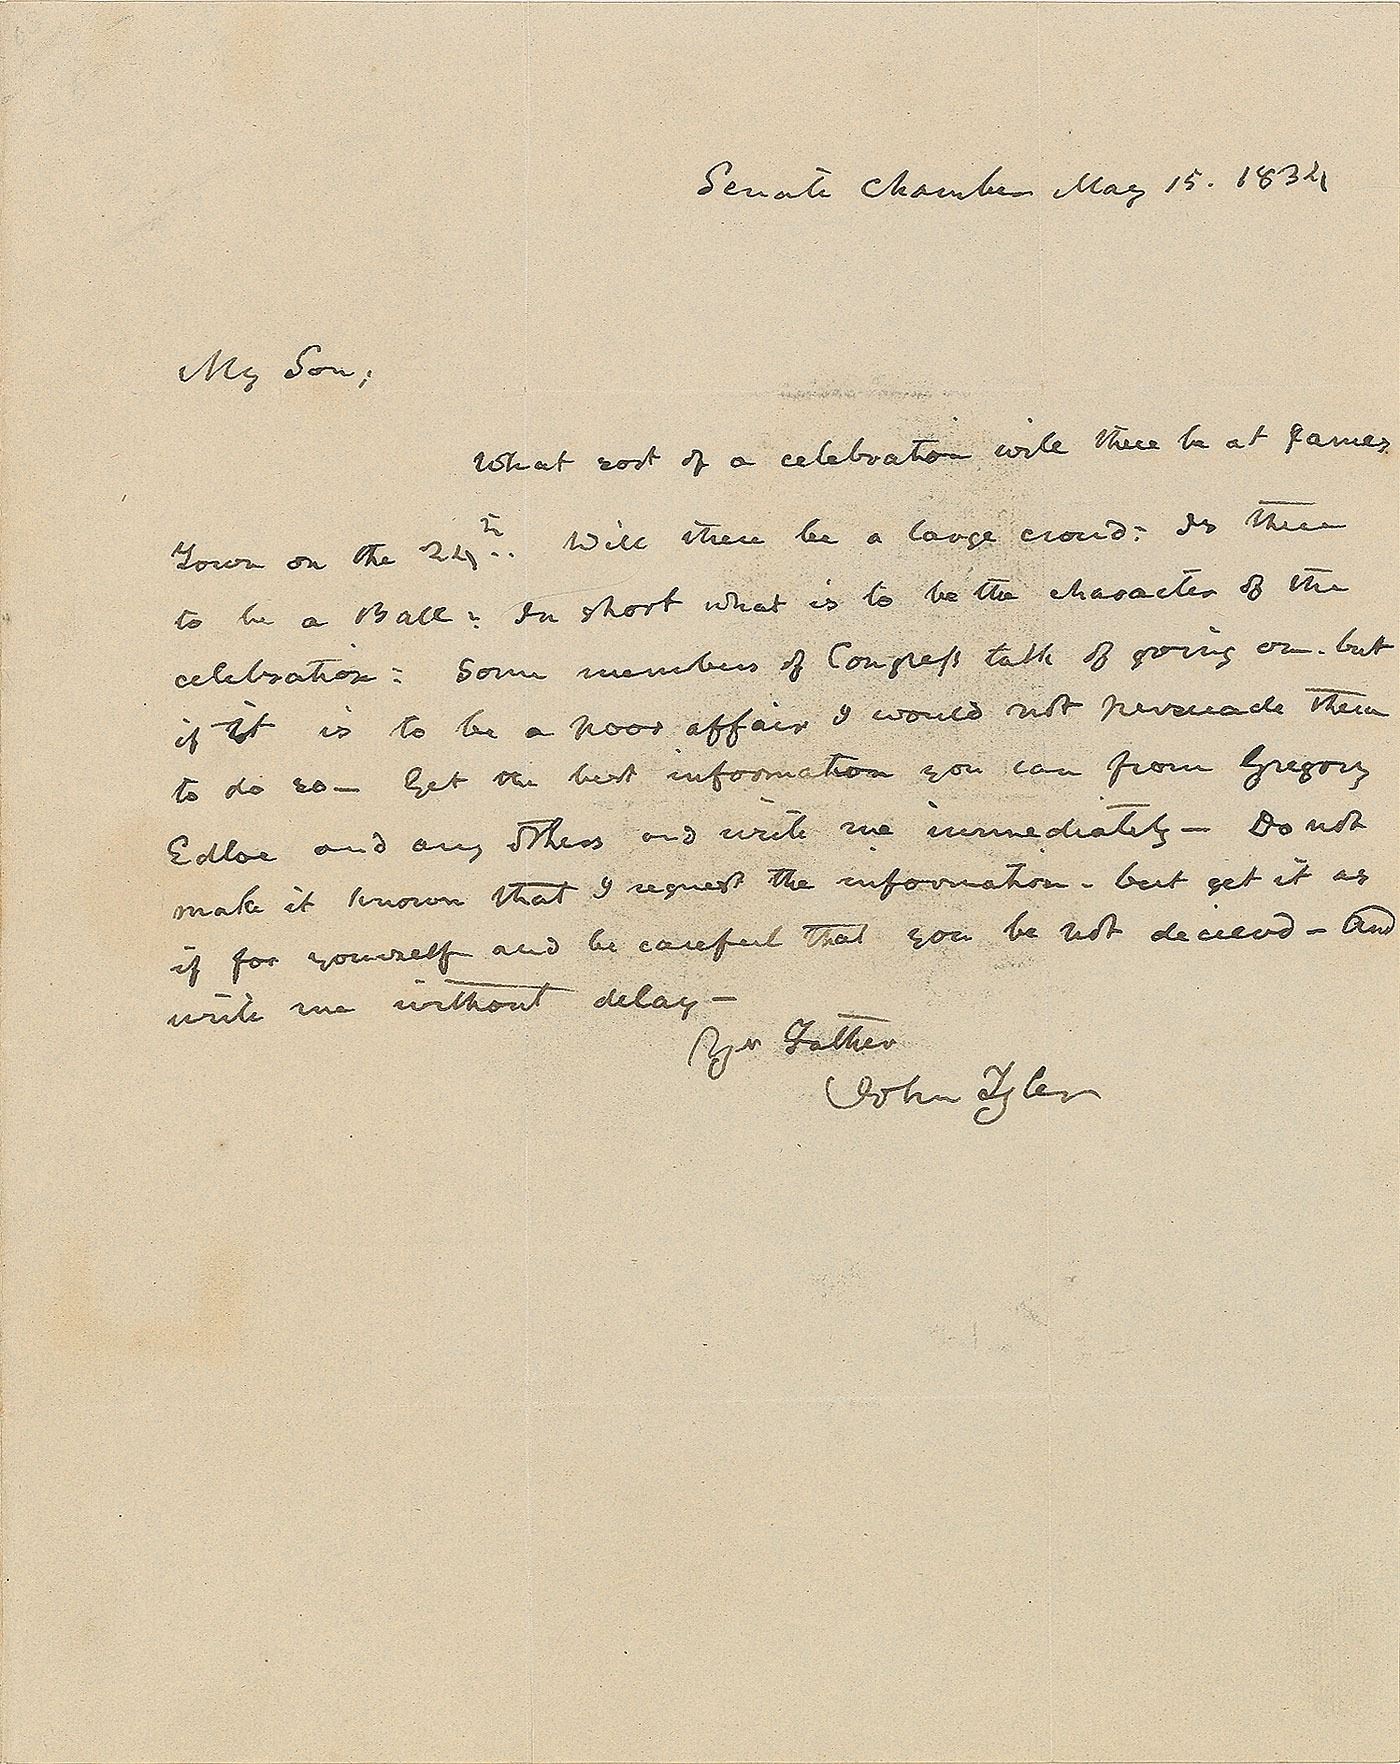 Senate Chamber May 15. 1834
My Son;
What sort of a celebration will there be at James
Town on the 24th. Will there be a large crowd? Is there
to be a Ball? In short what is to be the character of the
celebration? Some members of Congress talk of going on - but
if it is to be a poor affair I would not persuade them
to do so — Get the best information you can from Gregory
Edloe and any others and write me immediately — Do not
make it known that I request the information - but get it as
if for yourself and be careful that you be not decievd — and
write me without delay —
Yr Father
John Tyler